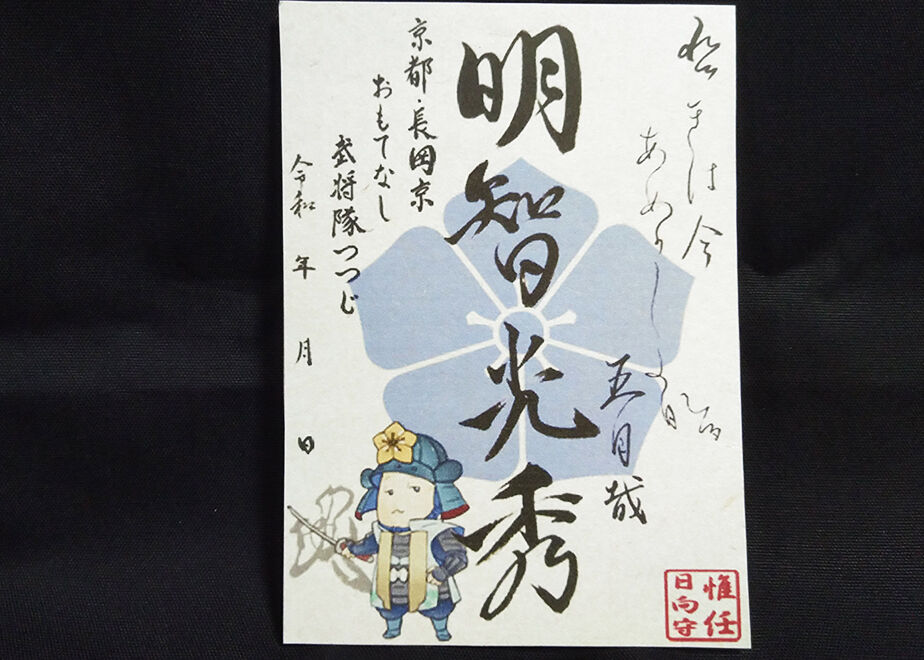 きは今
あめ
五月哉
明智光秀
京都・長岡京
おもてなし
武将隊つつじ
令和 年 月 日
惟任
日向守